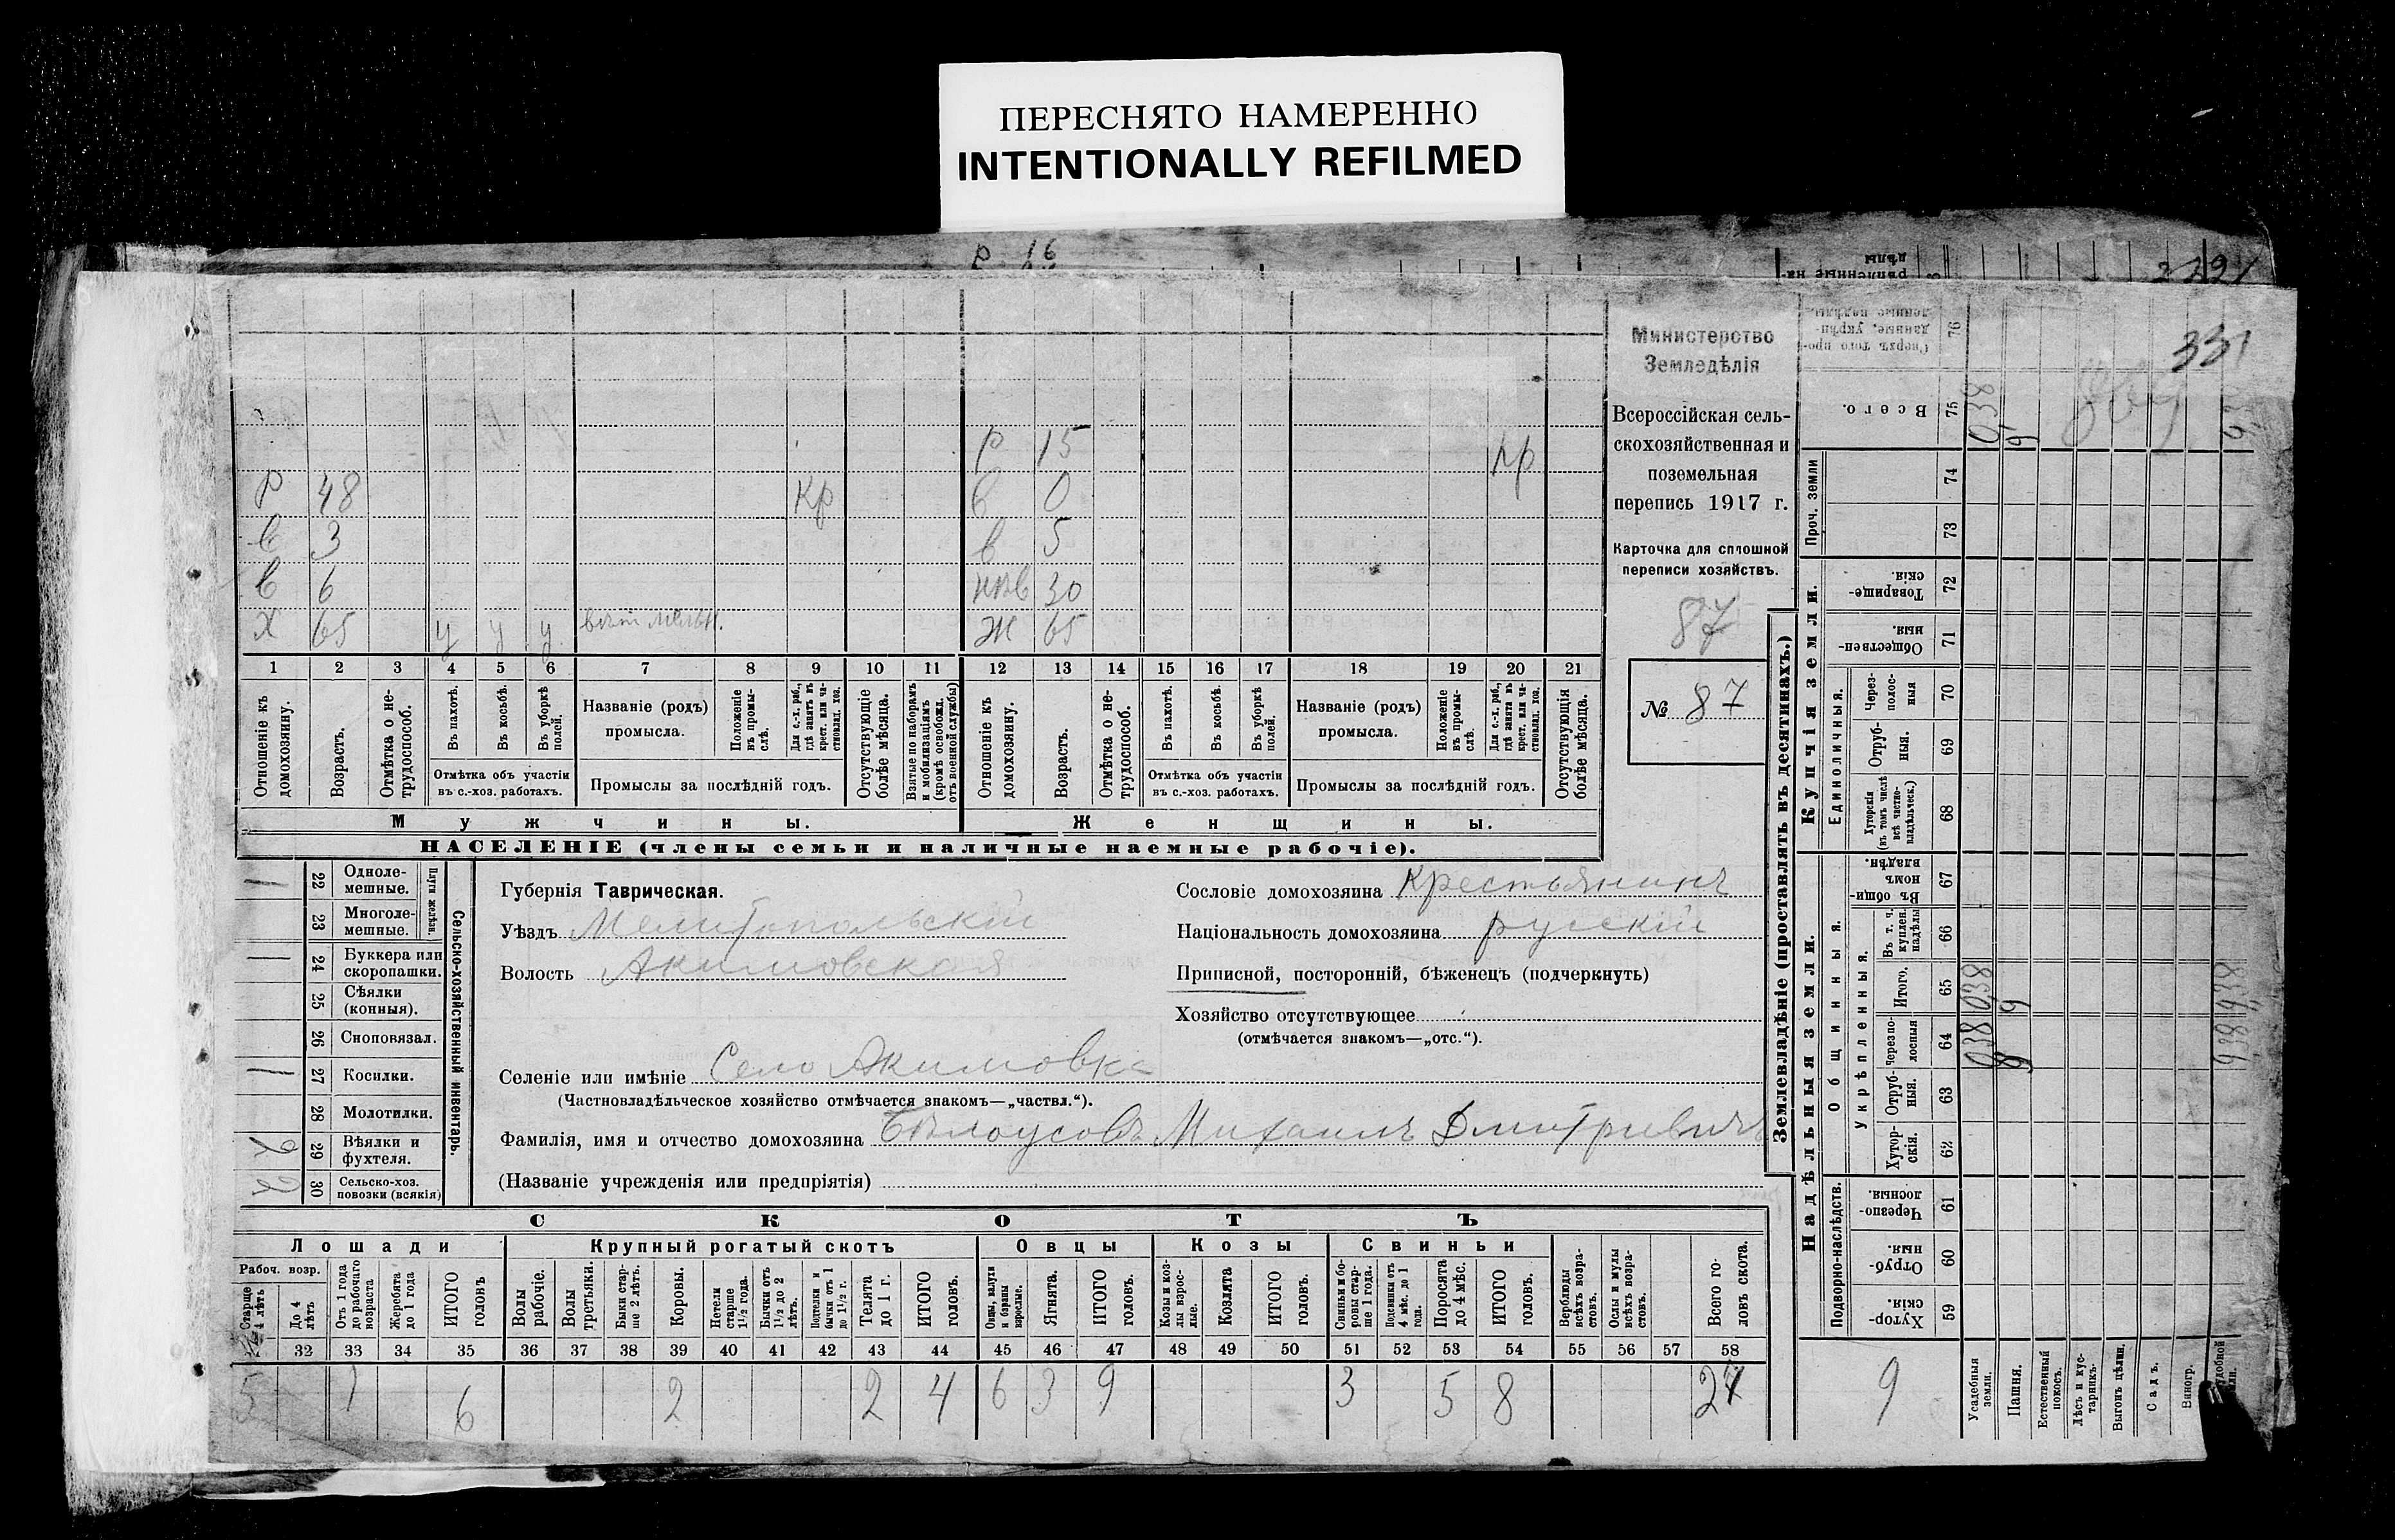 ПЕРЕСНЯТО НАМЕРЕННО
INTENTIONALLY REFILMED
331
Министерство
Земледѣлія
Всероссійская сель-
скохозяйственная и
поземельная
перепись 1917 г.
Карточка для сплошной
переписи хозяйствъ.
87
№ 87
Р 15 кр
Р 48 кр в 0
в 3 в 5
в 6 30
Х 65 у у у Ж 65
1 2 3 4 5 6 7 8 9 10 11 12 13 14 15 16 17 18 19 20 21
Отношеніе къ домохозяину.
Возрастъ.
Отмѣтка о не-трудоспособ.
Въ пахотѣ.
Въ косьбѣ.
Въ уборкѣ полей.
Отмѣтка объ участіи
въ с.-хоз. работахъ.
Названіе (родъ)
промысла.
Положеніе въ промы-слѣ.
Для с.-х. раб., гдѣ занятъ въ крест. или ча-стновлад. хоз.
Промыслы за послѣдній годъ.
Отсутствующіе болѣе мѣсяца.
Взятые по наборамъ и мобилизаціямъ (кромѣ освобожд. отъ военной службы)
Отношеніе къ домохозяину.
Возрастъ.
Отмѣтка о не-трудоспособ.
Въ пахотѣ.
Въ косьбѣ.
Въ уборкѣ полей.
Отмѣтка объ участіи
въ с.-хоз. работахъ.
Названіе (родъ)
промысла.
Положеніе въ промы-слѣ.
Для с.-х. раб., гдѣ занята въ крест. или ча-стновлад. хоз.
Промыслы за послѣдній годъ.
Отсутствующія болѣе мѣсяца.
Мужчины.
Женщины.
НАСЕЛЕНІЕ (члены семьи и наличные наемные рабочіе).
Сельско-хозяйственный инвентарь.
Плуги желѣзн.
22 Одноле-мешные.
23 Многоле-мешные.
24 Буккера или скоропашки.
25 Сѣялки (конныя).
26 Сноповязал.
27 Косилки.
28 Молотилки.
29 Вѣялки и фухтеля.
30 Сельско-хоз. повозки (всякія)
Губернія Таврическая.
Уѣздъ Мелитопольскій
Волость Акимовская
Сословіе домохозяина Крестьянинъ
Національность домохозяина русскій
Приписной, посторонній, бѣженецъ (подчеркнуть)
Хозяйство отсутствующее
(отмѣчается знакомъ—„отс.“).
Селеніе или имѣніе Село Акимовка
(Частновладѣльческое хозяйство отмѣчается знакомъ—„частвл.“).
Фамилія, имя и отчество домохозяина Бѣлоусовъ Михаилъ Дмитріевичъ
(Названіе учрежденія или предпріятія)
СКОТЪ
Лошади
Крупный рогатый скотъ
Овцы
Козы
Свиньи
Рабоч. возр.
Старше 4 лѣтъ
До 4 лѣтъ
Отъ 1 года до рабочаго возраста
Жеребята до 1 года
ИТОГО головъ
Волы рабочіе.
Волы третьяки.
Быки стар-ше 2 лѣтъ.
Коровы.
Нетели старше 1½ года.
Бычки отъ 1½ до 2 лѣтъ.
Подтелки и бычки отъ 1 до 1½ г.
Телята до 1 г.
ИТОГО головъ.
Овцы, валухи и бараны взрослые.
Ягнята.
ИТОГО головъ.
Козы и коз-лы взрос-лые.
Козлята
ИТОГО головъ.
Свиньи и бо-ровы стар-ше 1 года.
Подсвинки отъ 4 мѣс. до 1 года.
Поросята до 4 мѣс.
ИТОГО головъ.
Верблюды всѣхъ возра-стовъ.
Ослы и мулы всѣхъ возра-стовъ.
Всего го-ловъ скота.
32 33 34 35 36 37 38 39 40 41 42 43 44 45 46 47 48 49 50 51 52 53 54 55 56 57 58
5 1 6 2 2 4 6 3 9 3 5 8 27
Землевладѣніе (проставлять въ десятинахъ.)
Надѣльныя земли.
Купчія земли.
Подворно-наслѣдств.
Общинныя.
Укрѣпленныя.
Единоличныя.
Проч. земли
Хутор-скія. 59
Отруб-ныя. 60
Черезпо-лосныя. 61
Хутор-скія. 62
Отруб-ныя. 63
Черезпо-лосныя 64
Итого. 65
Въ т. ч. куплен. надѣлы 66
Въ общи-номъ владѣн. 67
Хуторскія (въ томъ числѣ всѣ частно-владѣльческ.) 68
Отруб-ныя. 69
Через-полос-ныя 70
Обществен-ныя. 71
Товарище-скія. 72
73
74
Всего. 75
76
Усадебныя земли.
Пашня.
Естественный покосъ.
Лѣсъ и кус-тарникъ.
Выгонъ цѣлин.
Садъ.
Виногр.
0,38 0,38 0,38
9 9 9
9,38 9,38
9